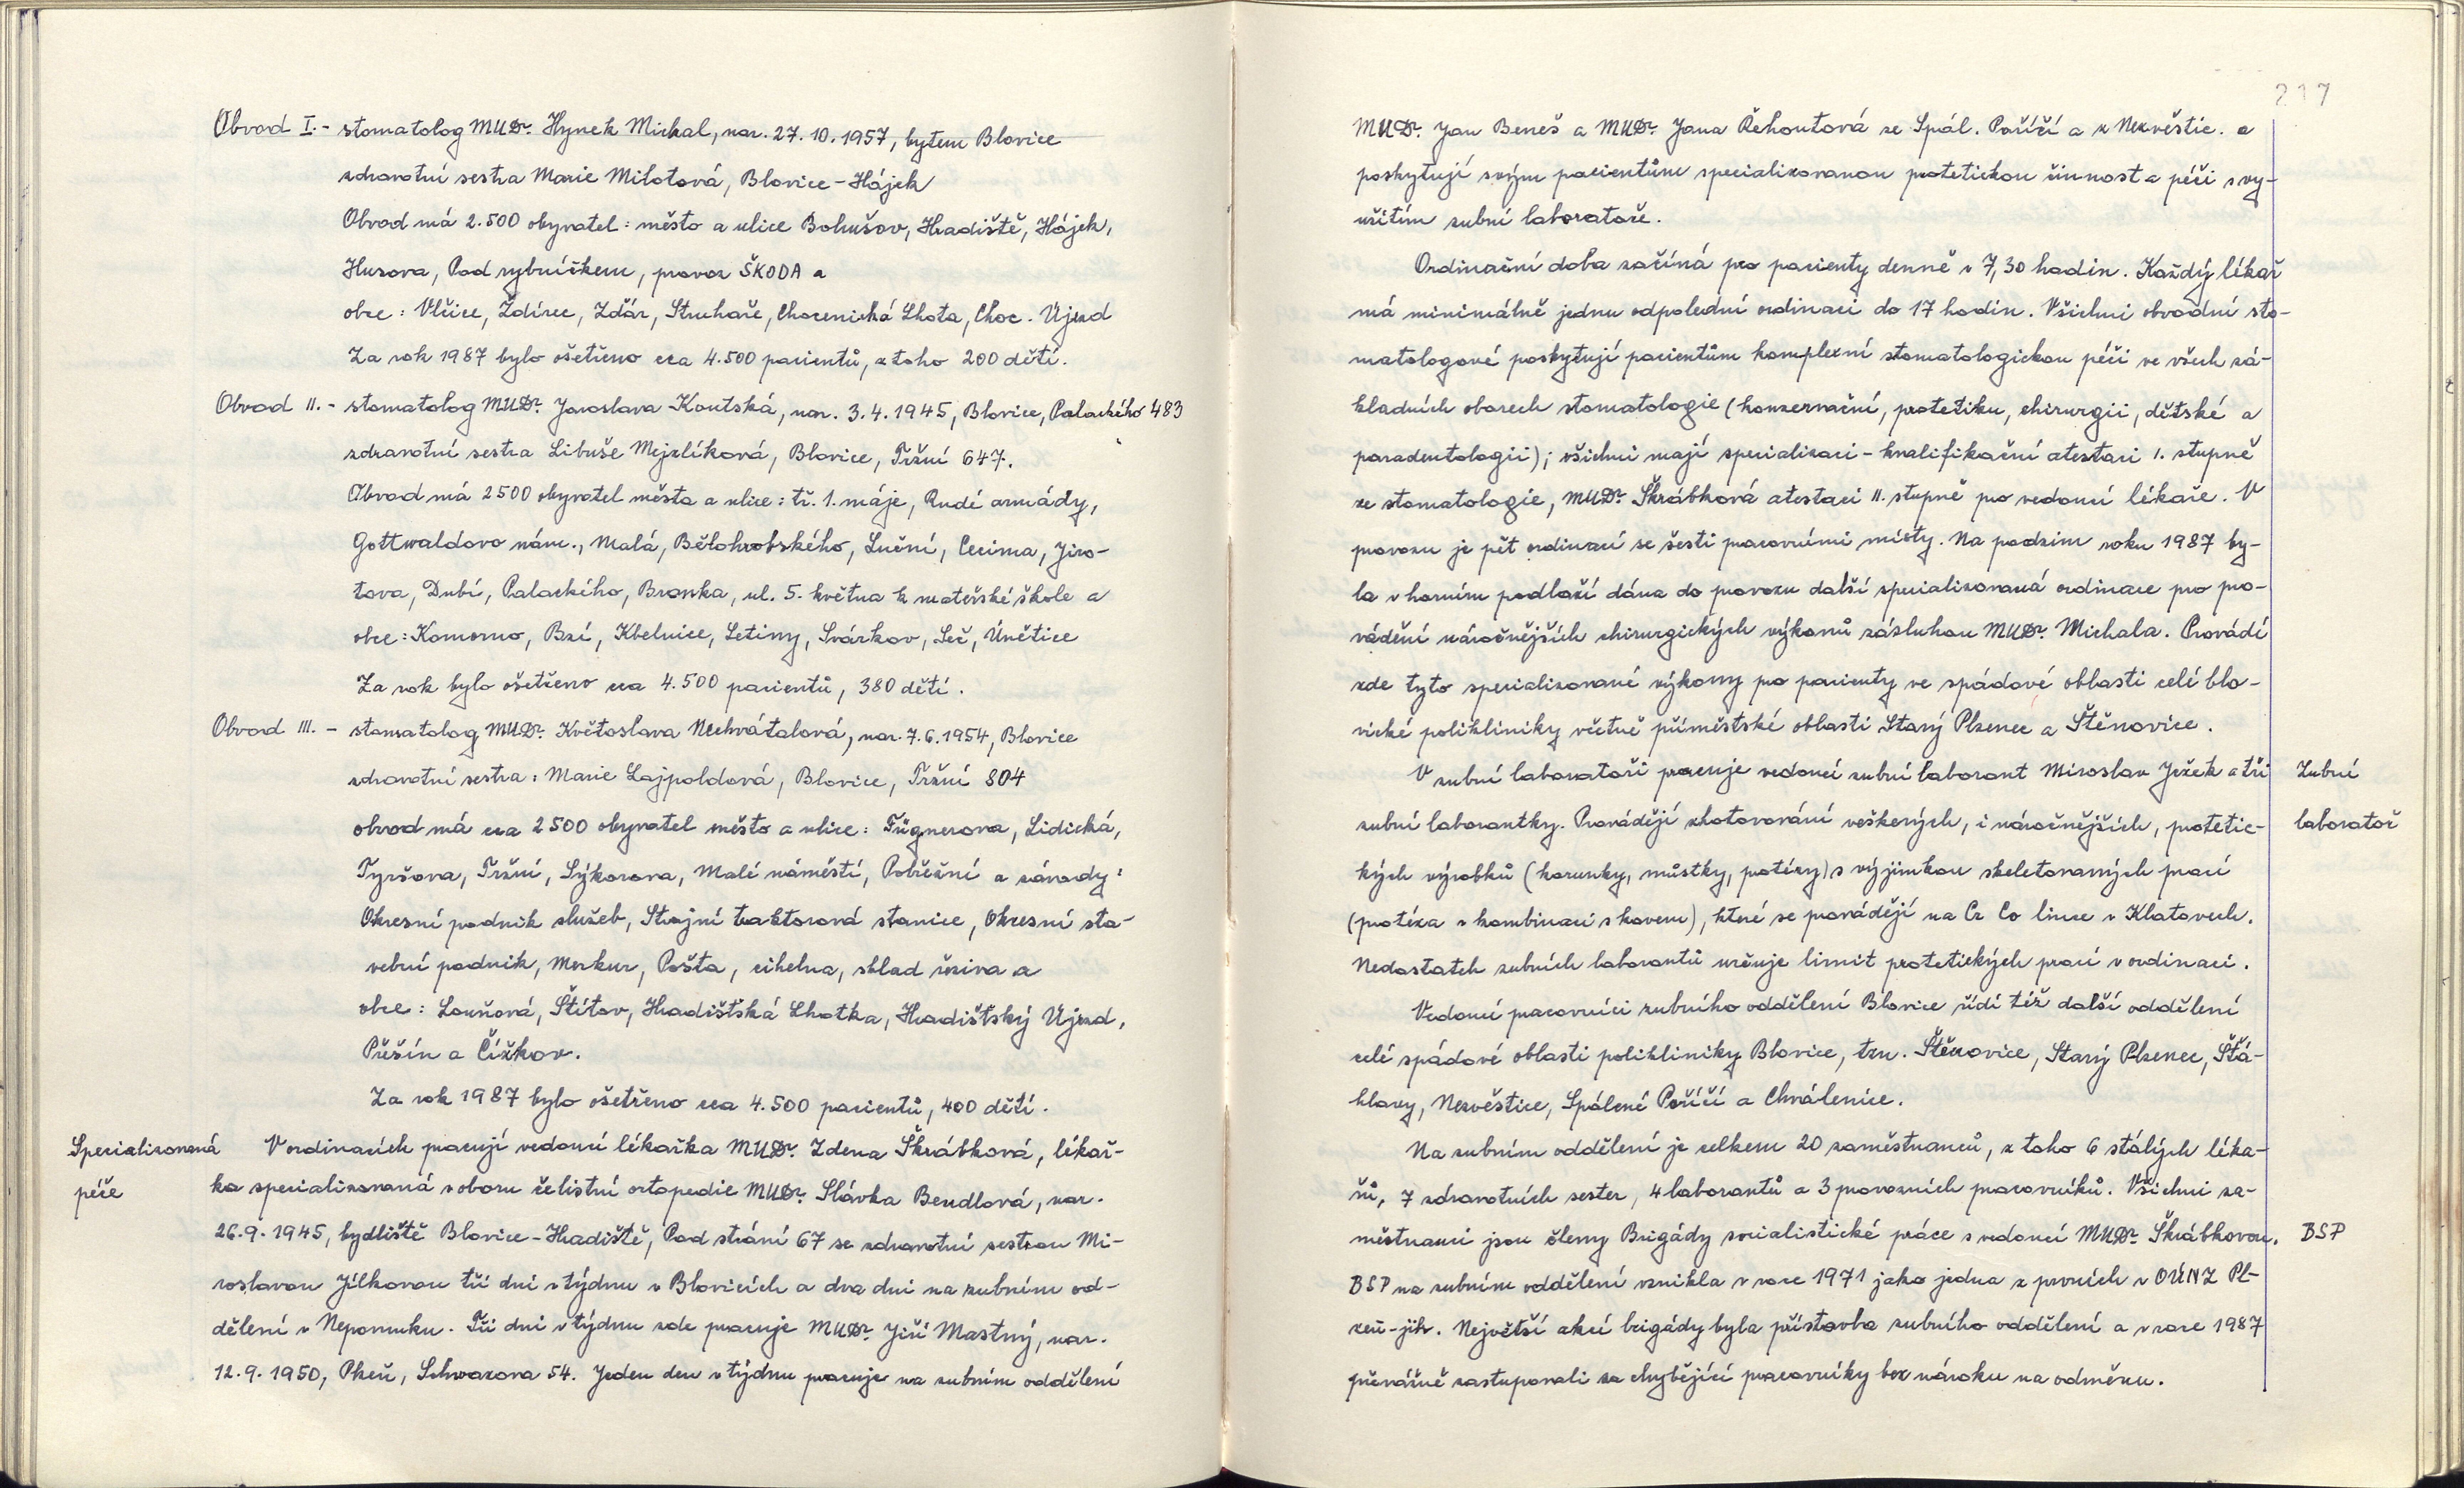 Obvod I. - stomatolog MUDr. Hynek Michal, nar. 27. 10. 1957, bytem Blovice
zdravotní sestra Marie Milotová, Blovice - Hájek
Obvod má 2.500 obyvatel: město a ulice Bohušov, Hradiště, Hájek,
Husova, Pod rybníčkem, provoz ŠKODA a
obce: Vlčice, Ždírec, Ždár, Struhaře, Chocenická Lhota, Choc. Újezd
Za rok 1987 bylo ošetřeno cca 4.500 pacientů, z toho 200 dětí.
Obvod II. - stomatolog MUDr. Jaroslava Koutská, nar. 3. 4. 1945, Blovice, Palackého 483
zdravotní sestra Libuše Mejzlíková, Blovice, Tržní 647.
Obvod má 2500 obyvatel města a ulice: tř. 1. máje, Rudé armády,
Gottwaldovo nám., Malá, Bělohrobského, Luční, Cecima, Jiro-
tova, Dubí, Palackého, Branka, ul. 5. května k mateřské škole a
obce: Komorno, Bzí, Kbelnice, Letiny, Svárkov, Seč, Únětice
Za rok bylo ošetřeno cca 4.500 pacientů, 380 dětí.
Obvod III. - stomatolog MUDr. Květoslava Nechvátalová, nar. 7. 6. 1954, Blovice
zdravotní sestra: Marie Lajpoldová, Blovice, Tržní 804
obvod má cca 2500 obyvatel město a ulice: Fügnerova, Lidická,
Tyršova, Tržní, Sýkorova, Malé náměstí, Pobřežní a závody:
Okresní podnik služeb, Strojní traktorová stanice, Okresní sta-
vební podnik, Merkur, Pošta, cihelna, sklad řeziva a
obce: Louňová, Štítov, Hradišťská Lhotka, Hradišťský Újezd,
Přešín a Čížkov.
Za rok 1987 bylo ošetřeno cca 4.500 pacientů, 400 dětí.
Specializovaná péče
V ordinacích pracují vedoucí lékařka MUDr. Zdena Škrábková, lékař-
ka specializovaná v oboru čelistní ortopedie MUDr. Slávka Bendlová, nar.
26. 9. 1945, bydliště Blovice - Hradiště, Pod strání 67 se zdravotní sestrou Mi-
roslavou Jílkovou tři dni v týdnu v Blovicích a dva dni na zubním od-
dělení v Nepomuku. Tři dni v týdnu zde pracuje MUDr. Jiří Mastný, nar.
12. 9. 1950, Plzeň, Schwarzova 54. Jeden den v týdnu pracuje na zubním oddělení
217
MUDr. Jan Beneš a MUDr. Jana Řehoutová ze Spál. Poříčí a z Nezvěstic. a
poskytují svým pacientům specializovanou protetickou činnost a péči s vy-
užitím zubní laboratoře.
Ordinační doba začíná pro pacienty denně v 7,30 hodin. Každý lékař
má minimálně jednu odpolední ordinaci do 17 hodin. Všichni obvodní sto-
matologové poskytují pacientům komplexní stomatologickou péči ve všech zá-
kladních oborech stomatologie (konzervační, protetiku, chirurgii, dětské a
paradentologii); všichni mají specializaci - kvalifikační atestaci 1. stupně
ze stomatologie, MUDr. Škrábková atestaci II. stupně pro vedoucí lékaře. V
provozu je pět ordinací se šesti pracovními místy. Na podzim roku 1987 by-
la v horním podlaží dána do provozu další specializovaná ordinace pro pro-
vádění náročnějších chirurgických výkonů zásluhou MUDr. Michala. Provádí
zde tyto specializované výkony pro pacienty ve spádové oblasti celé blo-
vické polikliniky včetně příměstské oblasti Starý Plzenec a Štěnovice.
V zubní laboratoři pracuje vedoucí zubní laborant Miroslav Ježek a tři
Zubní
zubní laborantky. Provádějí zhotovování veškerých, i náročnějších, protetic-
laboratoř
kých výrobků (korunky, můstky, protézy) s výjimkou skeletovaných prací
(protéza v kombinaci s kovem), které se provádějí na Cr Co lince v Klatovech.
Nedostatek zubních laborantů určuje limit protetických prací v ordinaci.
Vedoucí pracovníci zubního oddělení Blovice řídí též další oddělení
celé spádové oblasti polikliniky Blovice, tzn. Štěnovice, Starý Plzenec, Šťá-
hlavy, Nezvěstice, Spálené Poříčí a Chválenice.
Na zubním oddělení je celkem 20 zaměstnanců, z toho 6 stálých léka-
řů, 7 zdravotních sester, 4 laborantů a 3 provozních pracovníků. Všichni za-
městnanci jsou členy Brigády socialistické práce s vedoucí MUDr. Škrábkovou.
BSP
BSP na zubním oddělení vznikla v roce 1971 jako jedna z prvních v OÚNZ Pl-
zeň - jih. Největší akcí brigády byla přístavba zubního oddělení a v roce 1987
převážně zastupovali za chybějící pracovníky bez nároku na odměnu.